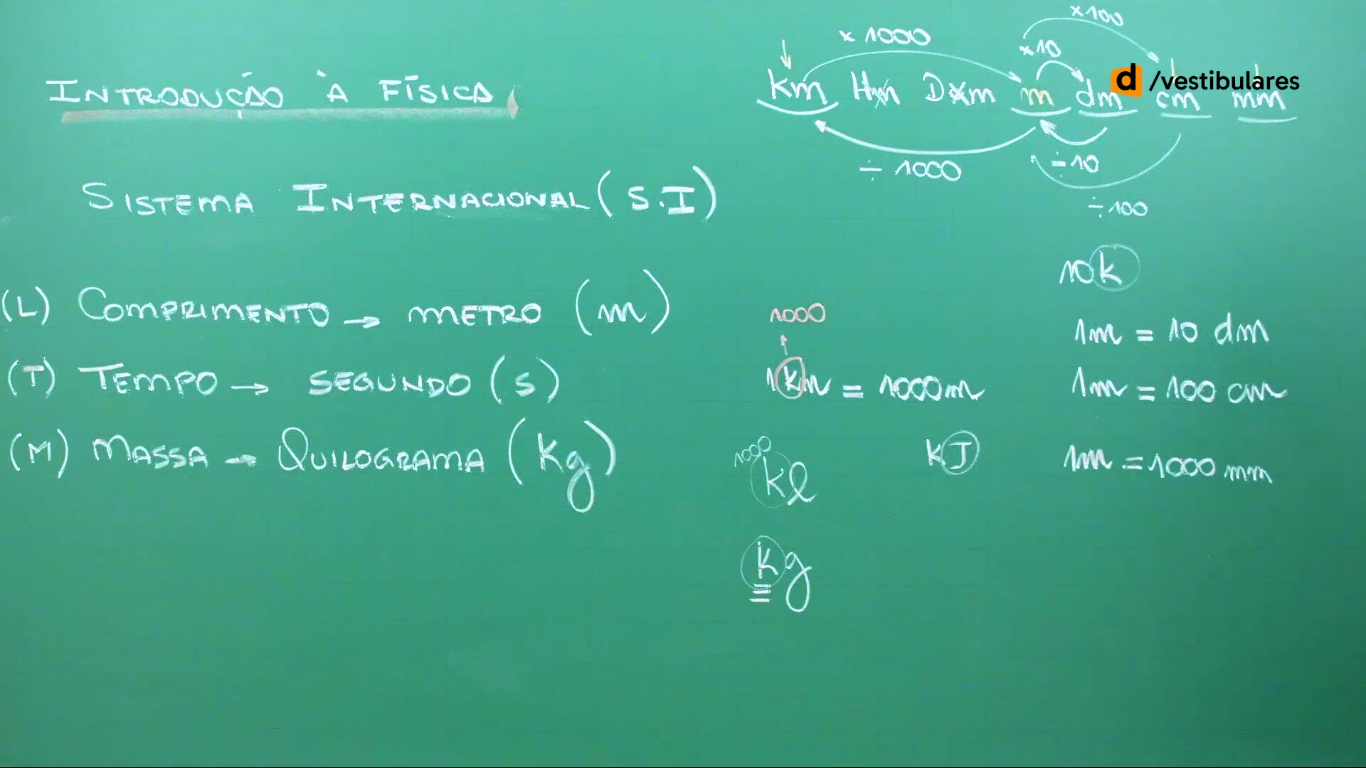 INTRODUÇÃO À FÍSICA
SISTEMA INTERNACIONAL (S.I)
(L) COMPRIMENTO → METRO (m)
(T) TEMPO → SEGUNDO (s)
(M) MASSA → QUILOGRAMA (kg)
x 1000
x10
x100
km Hm Dam m dm cm mm
d /vestibulares
÷ 1000
÷10
÷100
10k
1000
1km = 1000m
1000
kl
kg
kJ
1m = 10 dm
1m = 100 cm
1m = 1000 mm